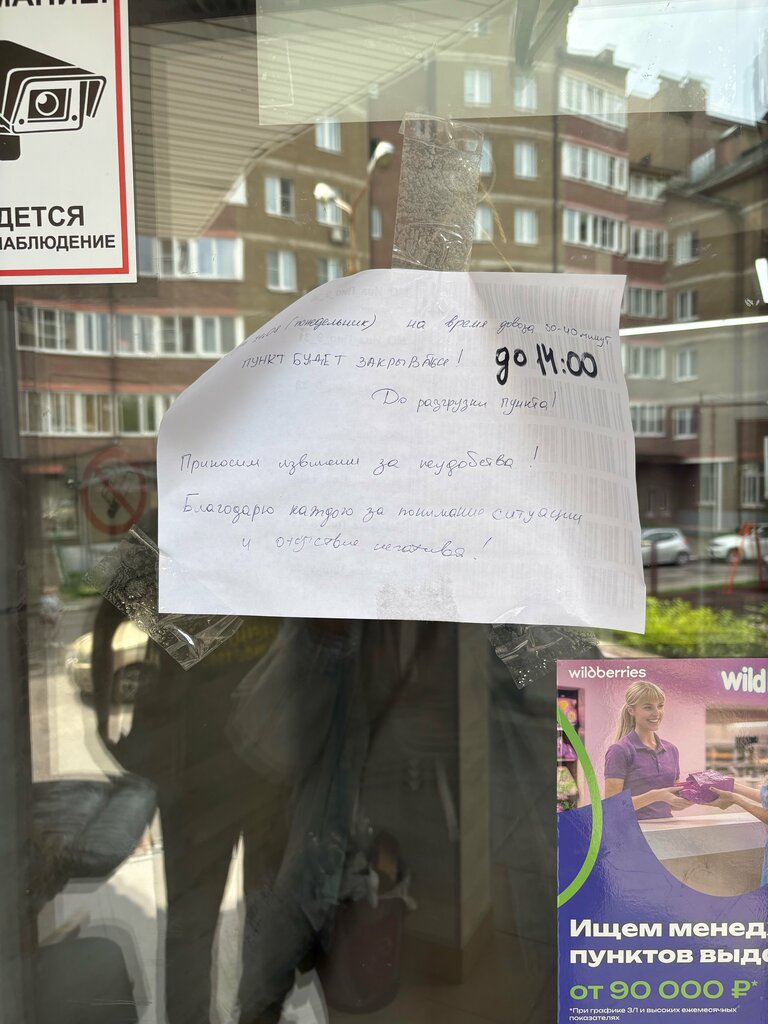 ДЕТСЯ
НАБЛЮДЕНИЕ
(понедельник) на время довоза 30-40 минут
ПУНКТ БУДЕТ ЗАКРЫВАТЬСЯ! до 14:00
До разгрузки пункта!
Приносим извинения за неудобства!
Благодарю каждого за понимание ситуации
и отсутствие негатива!
wildberries
wild
Ищем менед
пунктов выд
от 90 000 ₽*
*При графике 3/1 и высоких ежемесячных
показателях